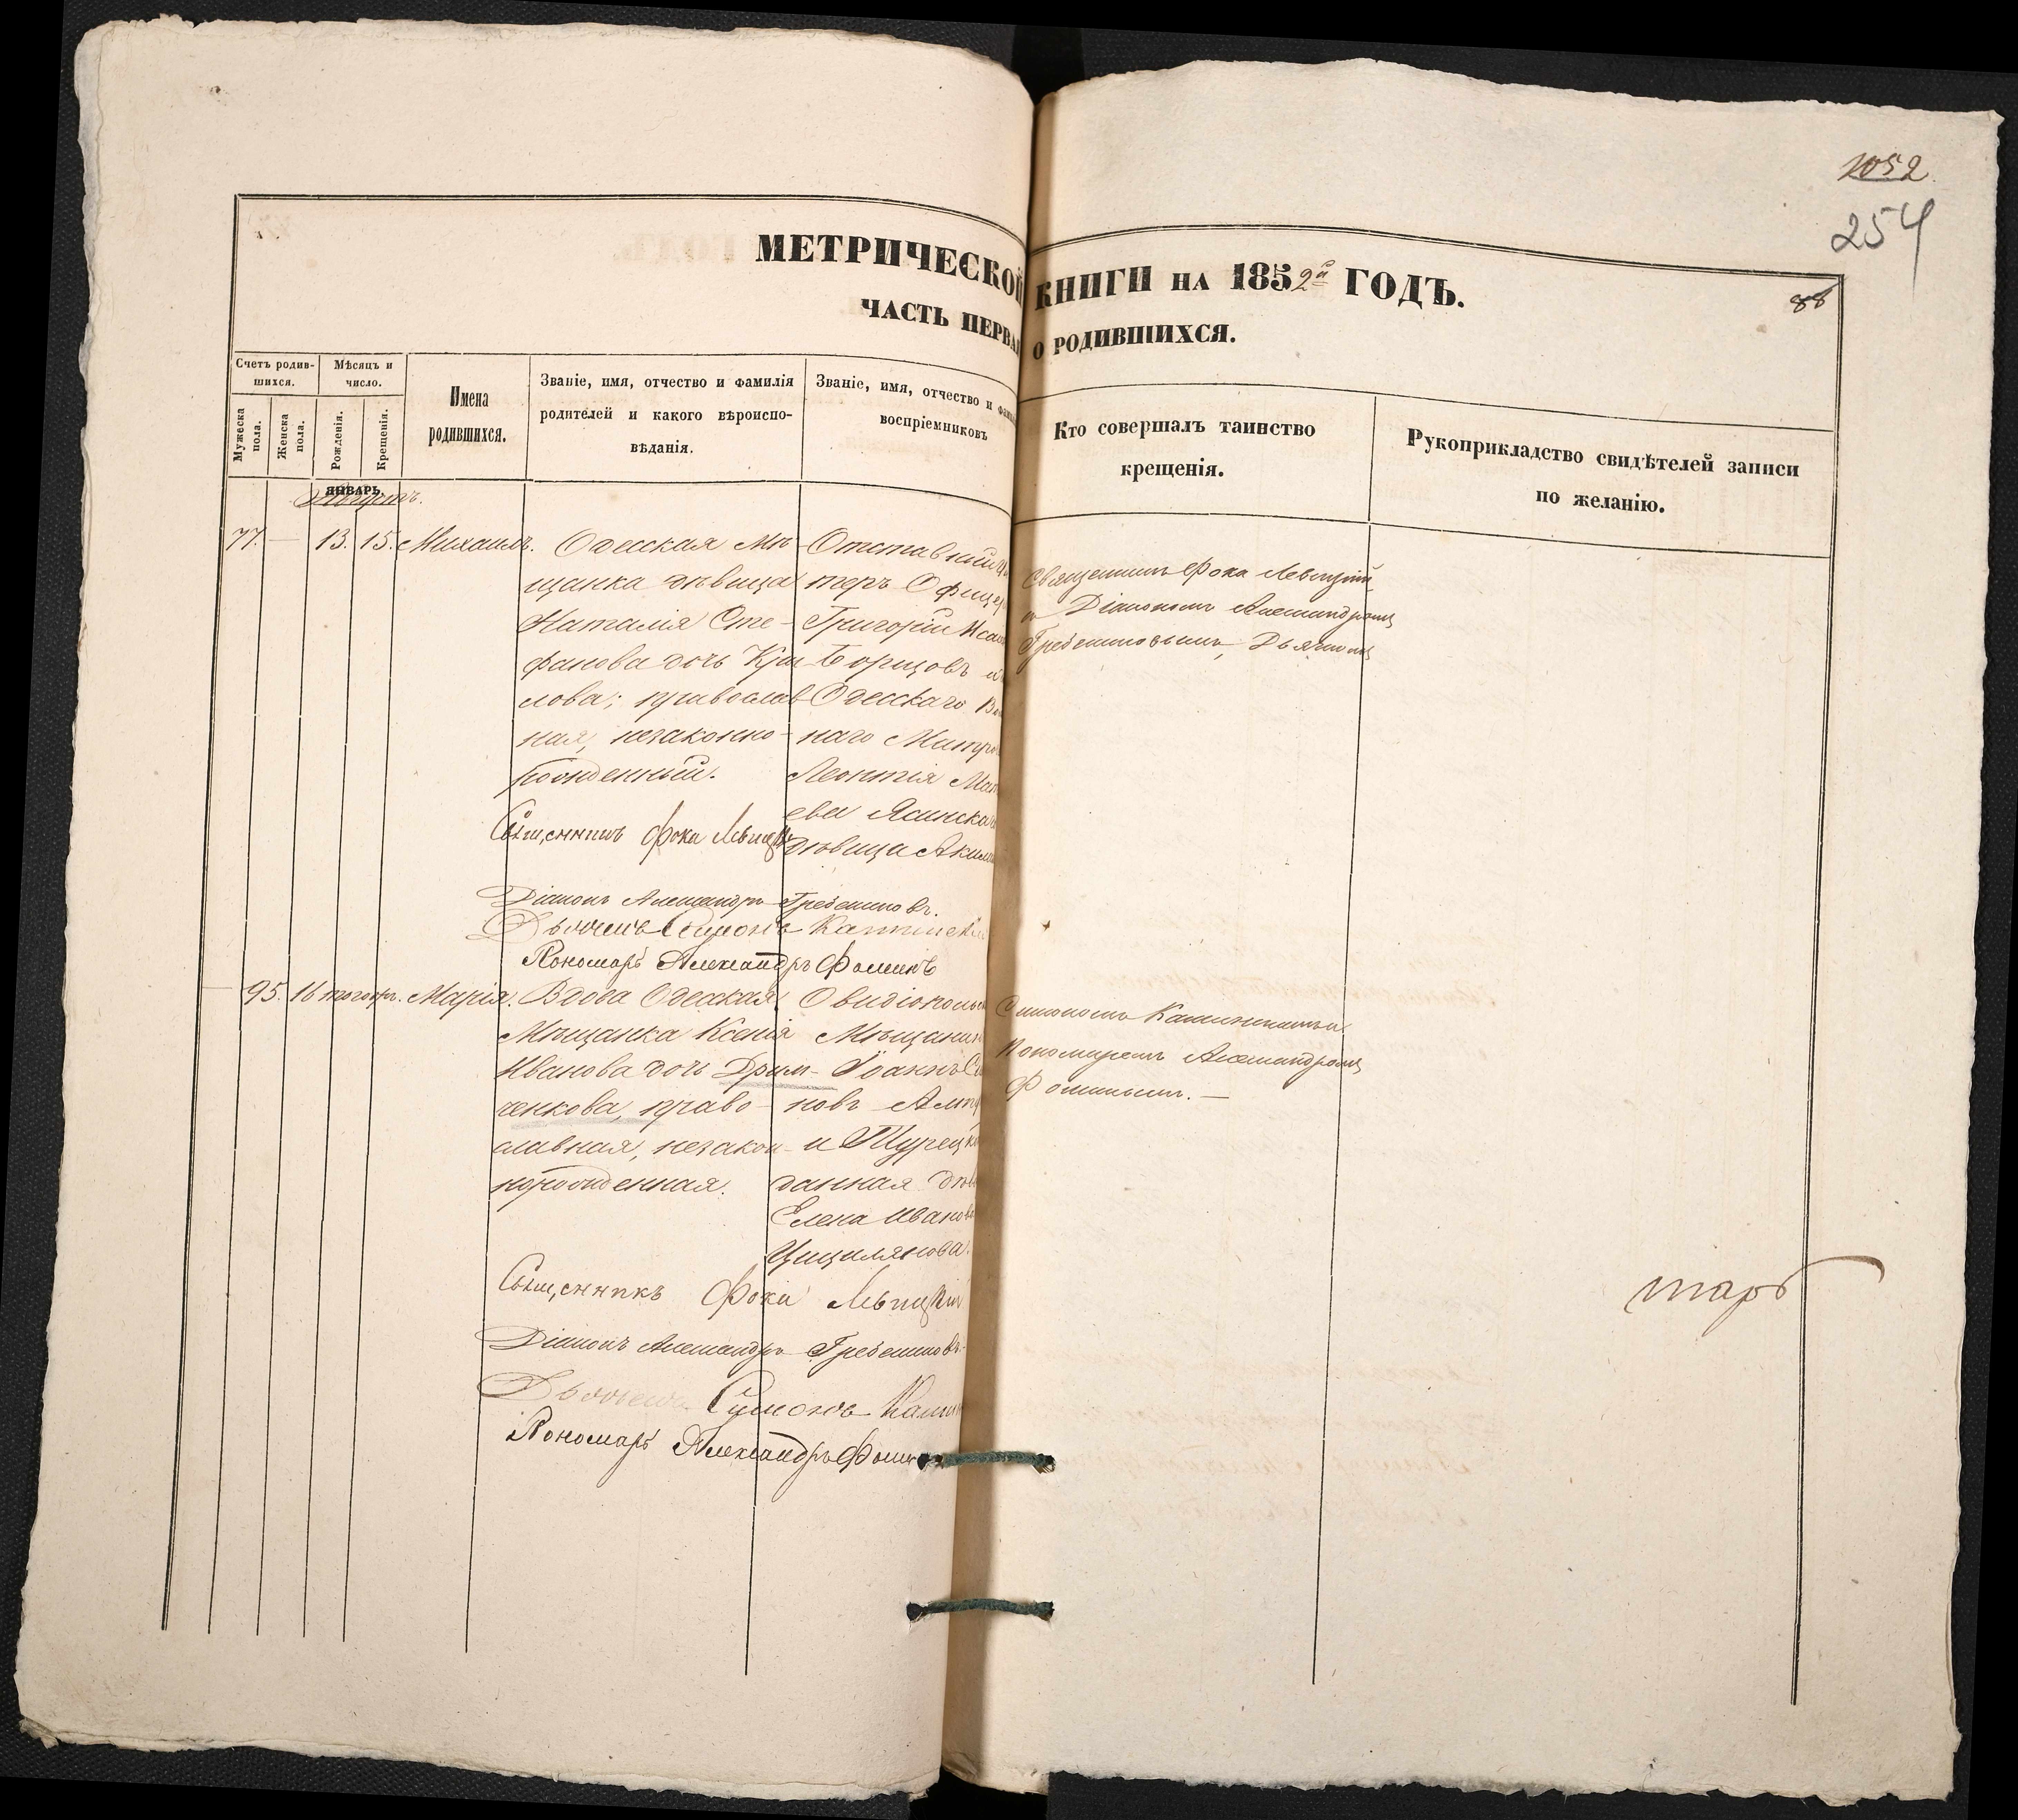 1052
254
88
МЕТРИЧЕСКОЙ КНИГИ НА 1852й ГОДЪ.
ЧАСТЬ ПЕРВАЯ О РОДИВШИХСЯ.
Счетъ родив-
шихся.
Мужеска пола.
Женска пола.
Мѣсяцъ и
число.
Рожденія.
Крещенія.
Имена
родившихся.
Званіе, имя, отчество и фамилія
родителей и какого вѣроиспо-
вѣданія.
Званіе, имя, отчество и фами
воспріемниковъ
Кто совершалъ таинство
крещенія.
Рукоприкладство свидѣтелей записи
по желанію.
ЯНВАРЬ.
Августъ.
77. — 13. 15. Михаилъ.
Одесская Мѣ-
щанка дѣвица
Наталія Сте-
фанова дочь Кри
лова; православ
ная, незаконно-
рожденный.
Отставный Ун
теръ Офице
Григорій Исаа
Борцовъ и
Одесскаго
наго Митро
Леонтія Мат
ева Ясинска
дѣвица Акили
Священникъ Фока Левицкій
съ Діакономъ Александромъ
Гребенниковымъ, Дьячкомъ
Священникъ Фока Львицкій
Діаконъ Александръ Гребенниковъ.
Дьячекъ Симонъ Каминскій
Пономарь Александръ Фоминъ
— 95. 16 тогожъ. Марія.
Вдова Одесская
Мѣщанка Ксенія
Иванова дочь Дрим-
ченкова, право-
славная, незакон-
норожденная.
Овидіополь
Мѣщанин
Іоаннъ
новъ
и Турецко
данная дѣв
Елена Иванов
Цицилянова.
Симономъ Каминскимъ и
Пономаремъ Александромъ
Фоминымъ. —
Священникъ Фока Львицкій
Діаконъ Александръ Гребенниковъ.
Дьячекъ Симонъ Камин
Пономарь Александръ Фомин
тарь